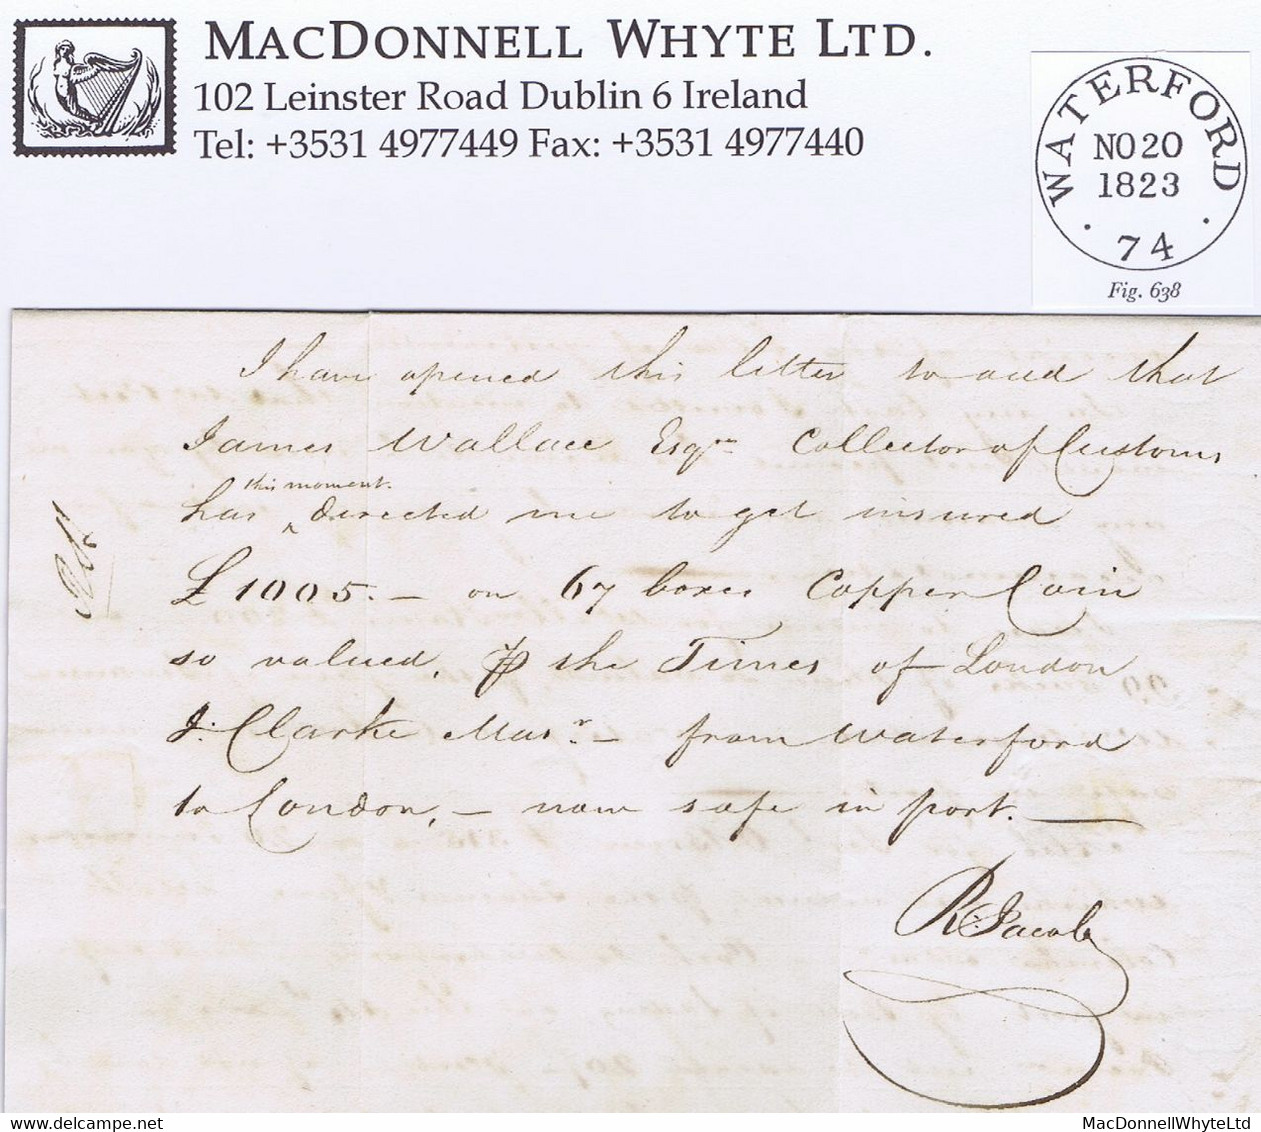 MACDONNELL WHYTE LTD.
102 Leinster Road Dublin 6 Ireland
Tel: +3531 4977449 Fax: +3531 4977440
WATERFORD
NO 20
1823
· 74 ·
Fig. 638
I have opened this letter to add that
James Wallace Esqre Collector of Customs
this moment
has ^ directed me to get insured
£1005. — on 67 boxes Copper Coin
so valued, ⅌ the Times of London
J: Clarke Masr. — from Waterford
to London, — now safe in port. —
R: Jacob
delcampe.net
MacDonnellWhyteLtd